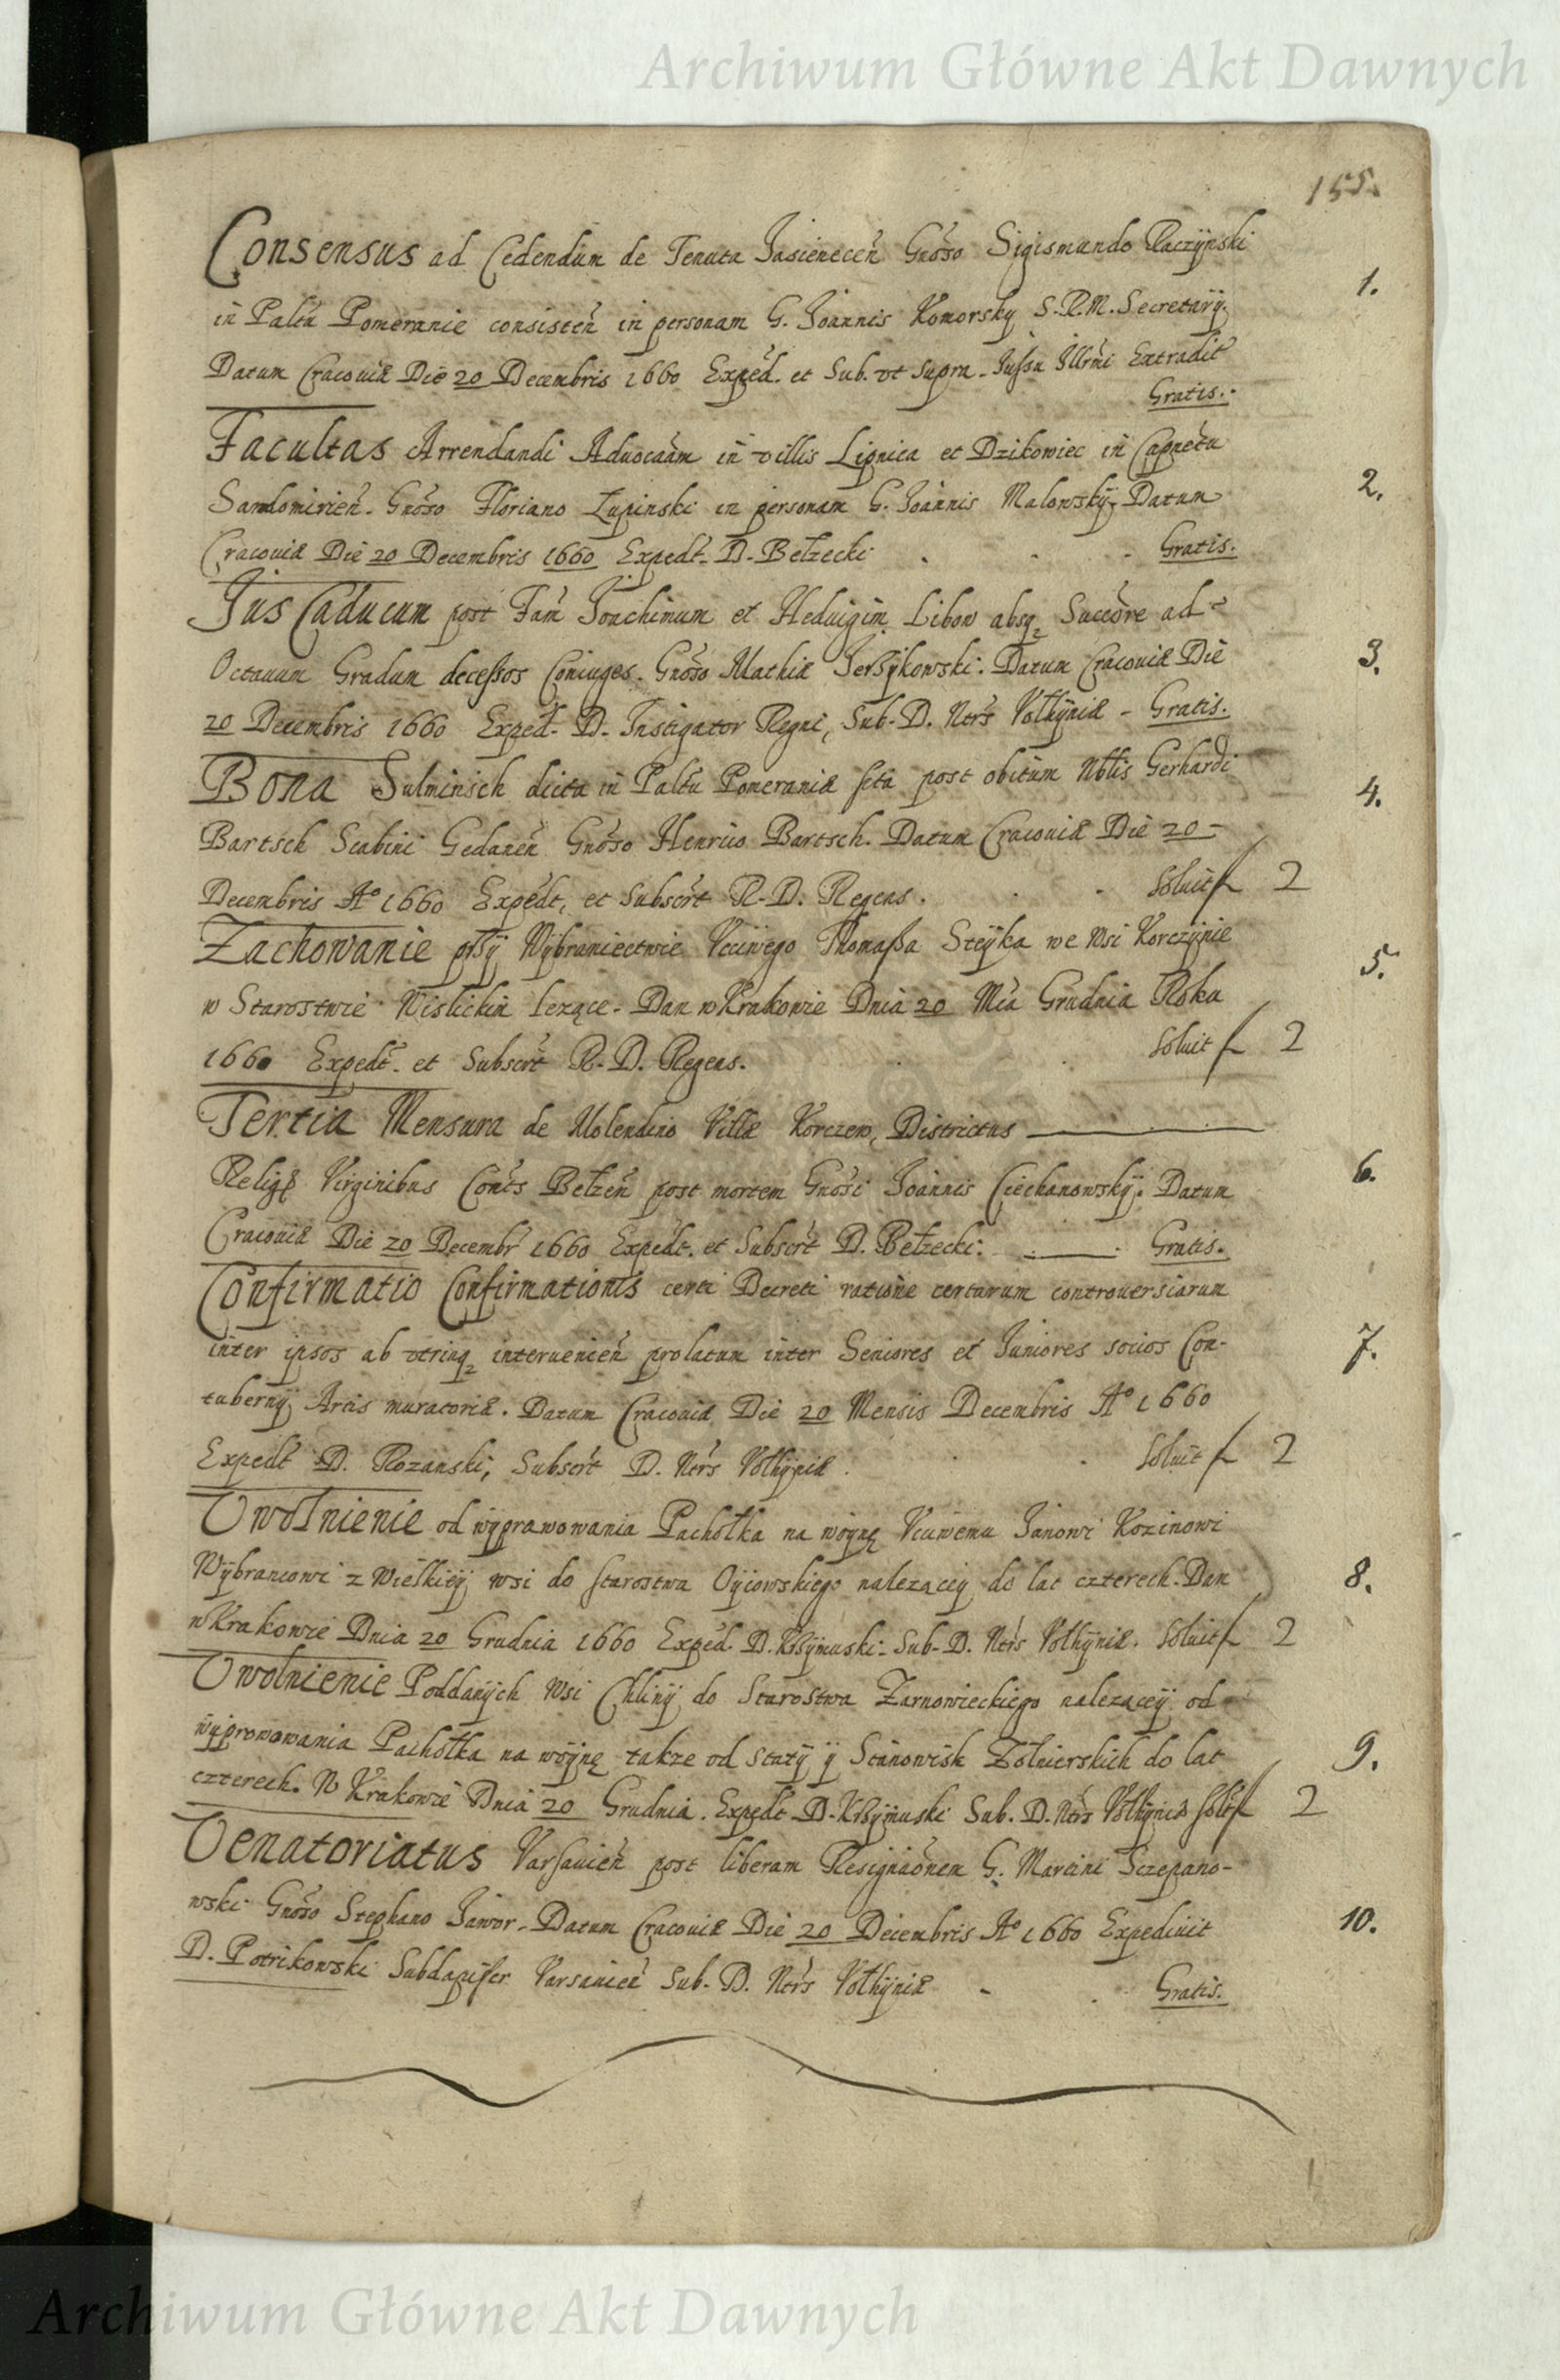 Archiwum Główne Akt Dawnych
155.
Consensus ad Cedendum de Tenuta Jasienecen̄ Gnōso Sigismundo Raczÿnski
1.
in Paltu Pomeranie consisten̄ in personam G. Joannis Komorsky S.R.M. Secretarÿ.
Datum Cracouiæ Die 20 Decembris 1660 Exped. et Sub. vt supra. Jussu Illrmi Extradit
Gratis.
Facultas Arrendandi Aduocaām in villis Lipnica et Dzikowiec in Capnētu
2.
Sandomirien̄. Gnōso Floriano Łupinski in personam G. Joannis Malowskÿ. Datum
Cracouiæ Die 20 Decembris 1660 Expedt. D. Bełzecki Gratis.
Jus Caducum post Fam Joachimum et Heduigim Libow absq₃ Succōre ad
3.
Octauum Gradum decessos Coniuges. Gnōso Mathiæ Jerzÿkowski. Datum Cracouiæ Die
20 Decembris 1660 Exped. D. Instigator Regni, Sub. D. Ntr̄s Vołhÿniæ - Gratis.
Bona Sulminsch dicta in Paltu Pomeraniæ sita post obitum Nblis Gerhardi
4.
Bartsch Scabini Gedanen̄ Gnōso Henrico Bartsch. Datum Cracouiæ Die 20
Decembris Aº 1660 Expedt. et Subscrt R. D. Regens. Soluit f 2
Zachowanie przÿ Wÿbraniectwie Vcciwego Thomaßa Steÿka we wsi Korczÿnie
5.
w Starostwie Wislickim lezące. Dan w Krakowie Dnia 20 Mca Grudnia Roka
1660 Expedt. et Subscrt R. D. Regens. Soluit f 2
Tertia Mensura de Molendino Villæ Korczew, Districtus
Religs Virginibus Conts Bełzen̄ post mortem Gnōsi Joannis Ciechanowskÿ. Datum
6.
Cracouiæ Die 20 Decembr 1660 Expedt. et Subscrt D. Bełzecki. Gratis.
Confirmatio Confirmationis certi Decreti ratione certarum controuersiarum
inter ipsos ab vtrinq₃ interuenien̄ prolatum inter Seniores et Juniores socios Con-
7.
tubernÿ Artis muratoriæ. Datum Cracouiæ Die 20 Mensis Decembris Aº 1660
Expedt D. Rozanski, Subscrt D. Ntr̄s Vołhÿniæ. Soluit f 2
Uwolnienie od wÿprawowania Pachołka na woÿnę Vcciwemu Janowi Kozinowi
Wÿbrancowi z Wielkieÿ wsi do starostwa Oÿcowskiego nalezącey do lat czterech. Dan
8.
w Krakowie Dnia 20 Grudnia 1660 Exped. D. Krzÿmuski. Sub. D. Ntr̄s Vołhÿniæ. Soluit f 2
Uwolnienie Poddanÿch Wsi Chlinÿ do Starostwa Zarnowieckiego nalezaceÿ od
wÿprowowania Pachołka na woÿnę takze od Statÿ ÿ Stanowisk Zołnierskich do lat
9.
czterech. W Krakowie Dnia 20 Grudnia. Expedt D. Krzÿmuski Sub. D. Ntr̄s Vołhÿniæ Solt f 2
Venatoriatus Varsauien̄ post liberam Resignaōnem G. Marcini Sczepano-
wski Gnōso Stephano Jawor. Datum Cracouiæ Die 20 Decembris Aº 1660 Expediuit
10.
D. Potrikowski Subdapifer Varsauien̄ Sub. D. Ntr̄s Vołhÿniæ Gratis.
Archiwum Główne Akt Dawnych